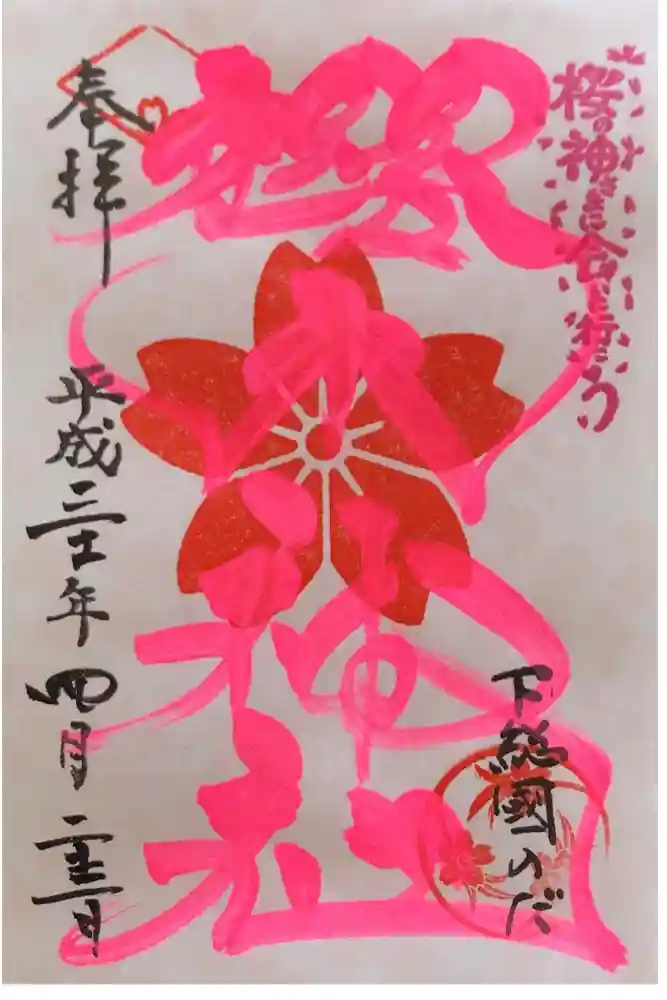 桜の神さまに会いに行こう
下総國のだ
櫻木神社
奉拝
平成三十一年 四月 二十三日